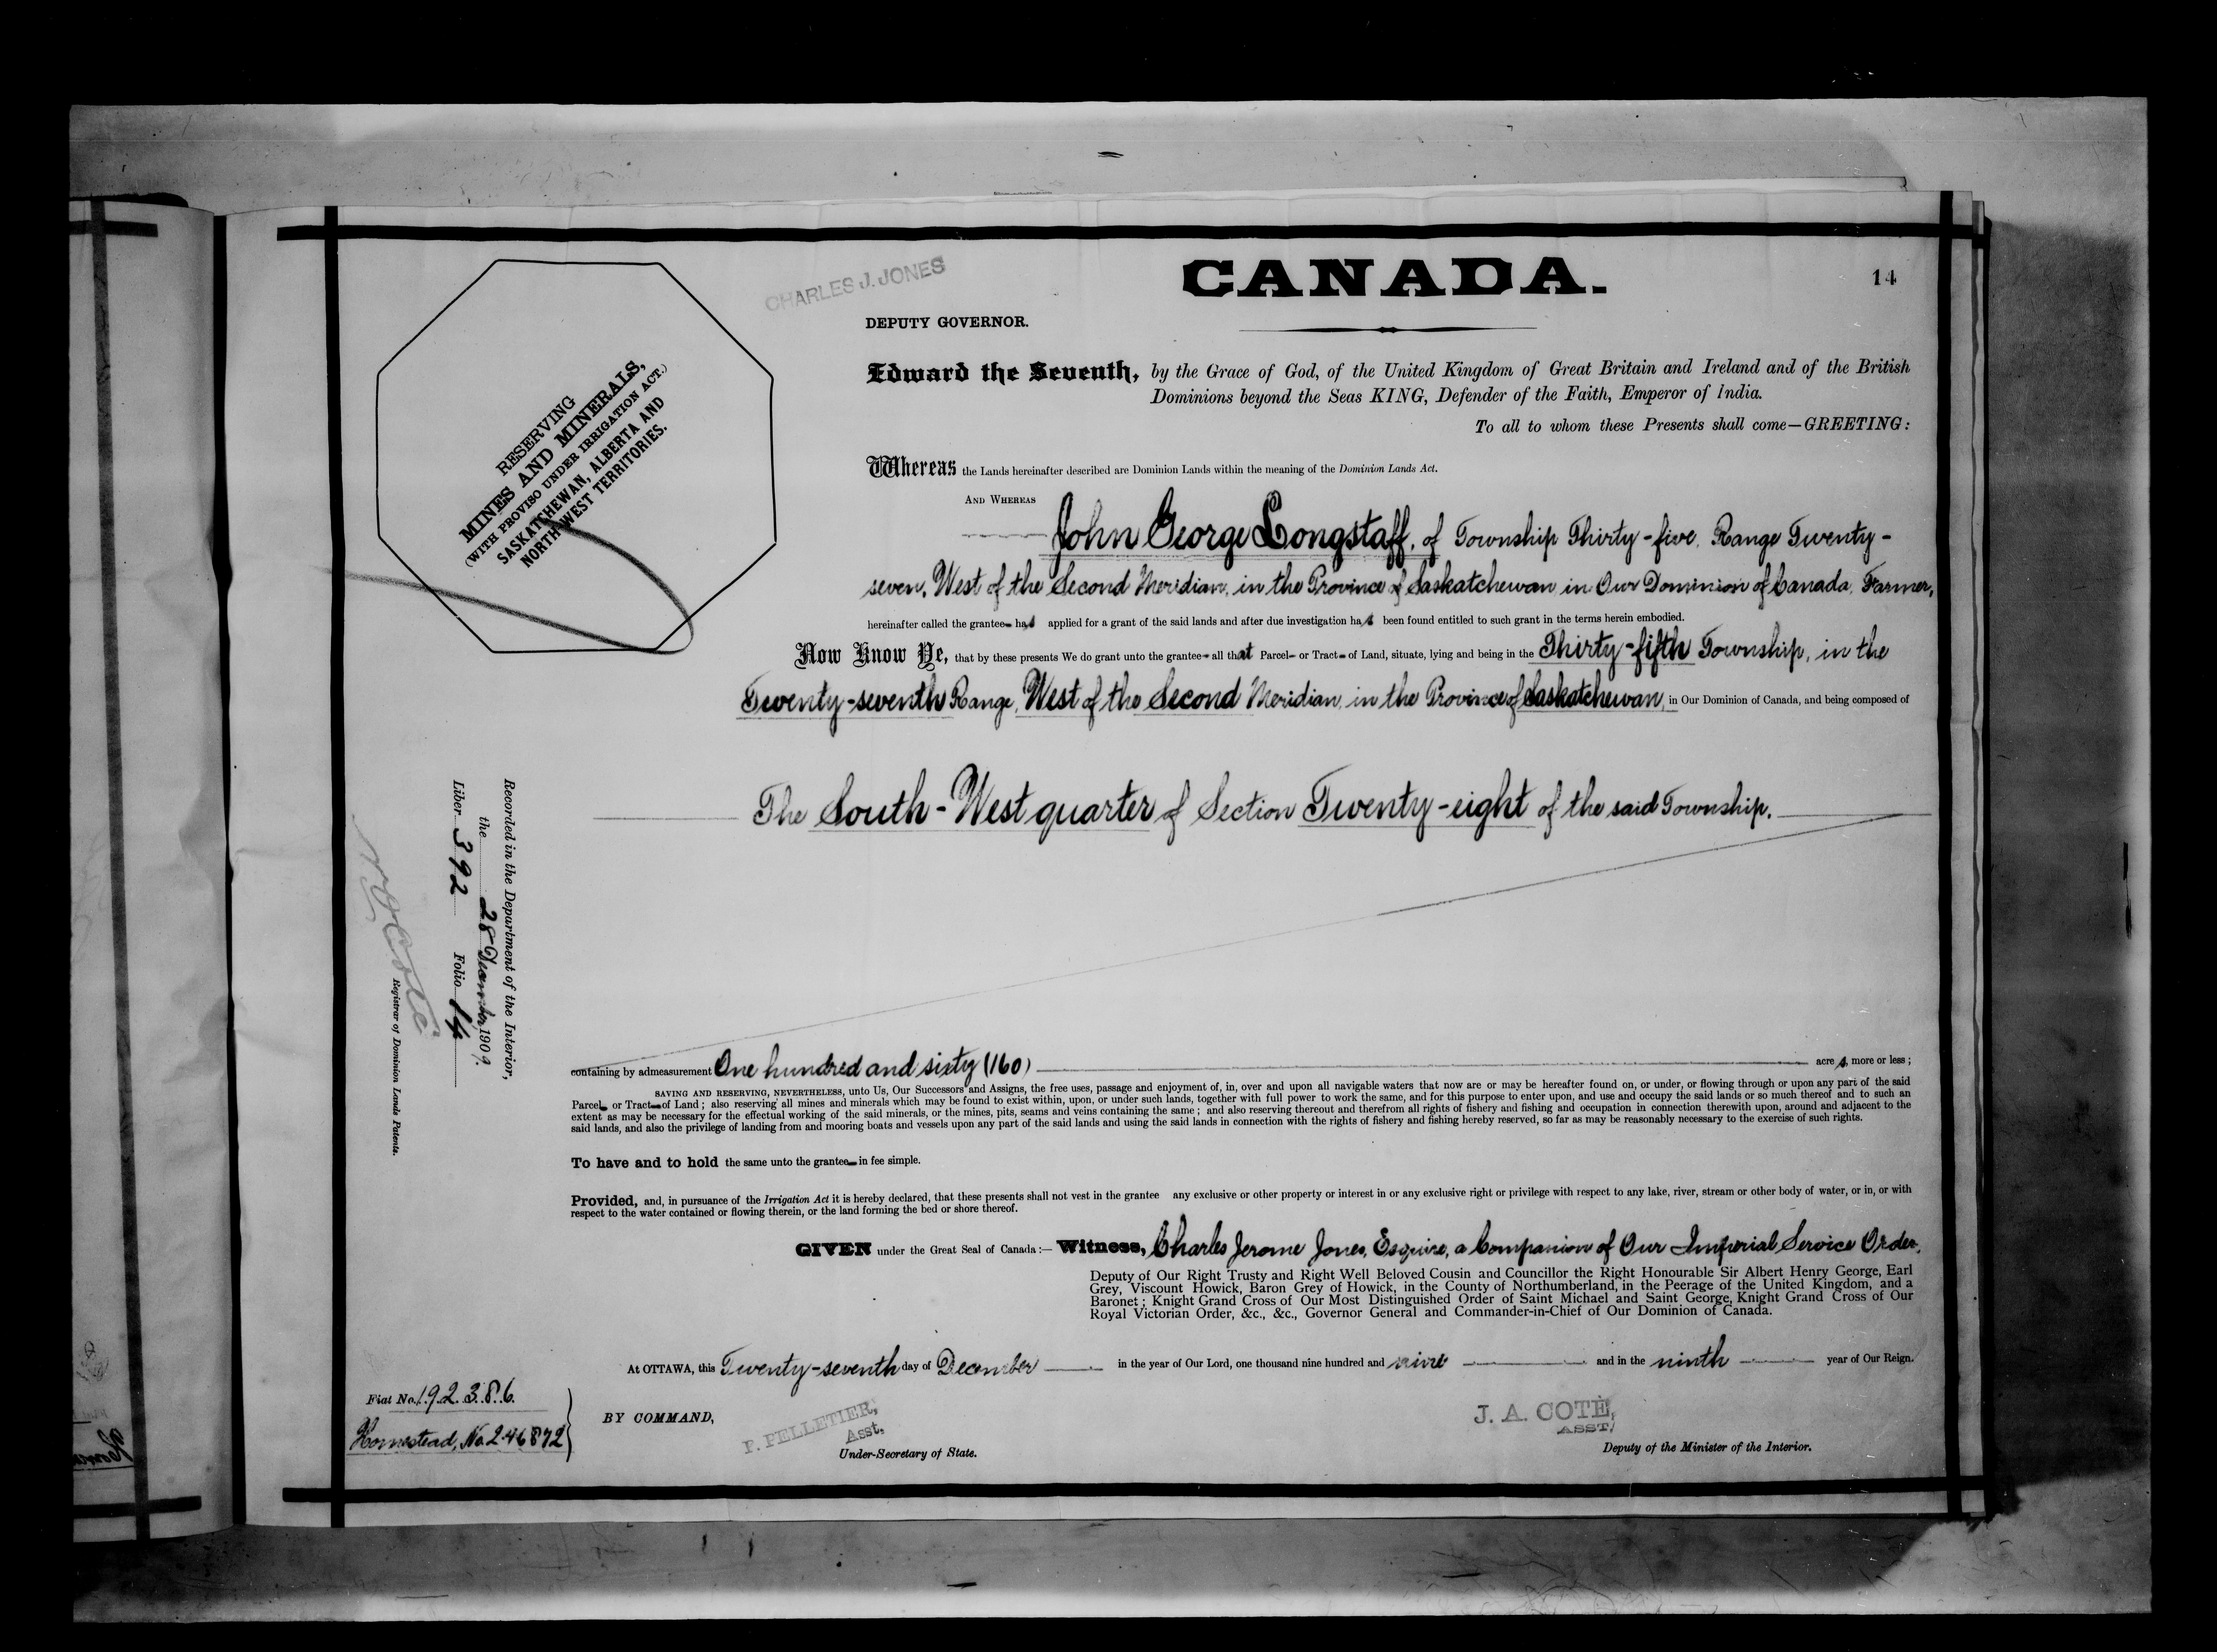 CANADA.
14
CHARLES J. JONES
DEPUTY GOVERNOR.
RESERVING
MINES AND MINERALS,
(WITH PROVISO UNDER IRRIGATION ACT.)
SASKATCHEWAN, ALBERTA AND
NORTH WEST TERRITORIES.
Edward the Seventh, by the Grace of God, of the United Kingdom of Great Britain and Ireland and of the British
Dominions beyond the Seas KING, Defender of the Faith, Emperor of India.
To all to whom these Presents shall come—GREETING:
Whereas the Lands hereinafter described are Dominion Lands within the meaning of the Dominion Lands Act.
AND WHEREAS
John George Longstaff, of Township Thirty-five, Range Twenty-
seven, West of the Second Meridian, in the Province of Saskatchewan in Our Dominion of Canada, Farmer,
hereinafter called the grantee has applied for a grant of the said lands and after due investigation has been found entitled to such grant in the terms herein embodied.
Now Know Ye, that by these presents We do grant unto the grantee all that Parcel or Tract of Land, situate, lying and being in the Thirty-fifth Township, in the
Twenty-seventh Range, West of the Second Meridian, in the Province of Saskatchewan, in Our Dominion of Canada, and being composed of
The South-West quarter of Section Twenty-eight of the said Township.
Recorded in the Department of the Interior,
the 28 December, 1909.
Liber 392 Folio 14
N. O. Coté
Registrar of Dominion Lands Patents.
containing by admeasurement One hundred and sixty (160) acres, more or less;
SAVING AND RESERVING, NEVERTHELESS, unto Us, Our Successors and Assigns, the free uses, passage and enjoyment of, in, over and upon all navigable waters that now are or may be hereafter found on, or under, or flowing through or upon any part of the said
Parcel or Tract of Land; also reserving all mines and minerals which may be found to exist within, upon, or under such lands, together with full power to work the same, and for this purpose to enter upon, and use and occupy the said lands or so much thereof and to such an
extent as may be necessary for the effectual working of the said minerals, or the mines, pits, seams and veins containing the same; and also reserving thereout and therefrom all rights of fishery and fishing and occupation in connection therewith upon, around and adjacent to the
said lands, and also the privilege of landing from and mooring boats and vessels upon any part of the said lands and using the said lands in connection with the rights of fishery and fishing hereby reserved, so far as may be reasonably necessary to the exercise of such rights.
To have and to hold the same unto the grantee in fee simple.
Provided, and, in pursuance of the Irrigation Act it is hereby declared, that these presents shall not vest in the grantee any exclusive or other property or interest in or any exclusive right or privilege with respect to any lake, river, stream or other body of water, or in, or with
respect to the water contained or flowing therein, or the land forming the bed or shore thereof.
GIVEN under the Great Seal of Canada:— Witness, Charles Jerome Jones, Esquire, a Companion of Our Imperial Service Order,
Deputy of Our Right Trusty and Right Well Beloved Cousin and Councillor the Right Honourable Sir Albert Henry George, Earl
Grey, Viscount Howick, Baron Grey of Howick, in the County of Northumberland, in the Peerage of the United Kingdom, and a
Baronet; Knight Grand Cross of Our Most Distinguished Order of Saint Michael and Saint George, Knight Grand Cross of Our
Royal Victorian Order, &c., &c., Governor General and Commander-in-Chief of Our Dominion of Canada.
At OTTAWA, this Twenty-seventh day of December in the year of Our Lord, one thousand nine hundred and nine and in the ninth year of Our Reign.
Fiat No. 192386.
Homestead, No. 246872
BY COMMAND,
P. PELLETIER,
Asst.
Under-Secretary of State.
J. A. COTÉ,
ASST.
Deputy of the Minister of the Interior.